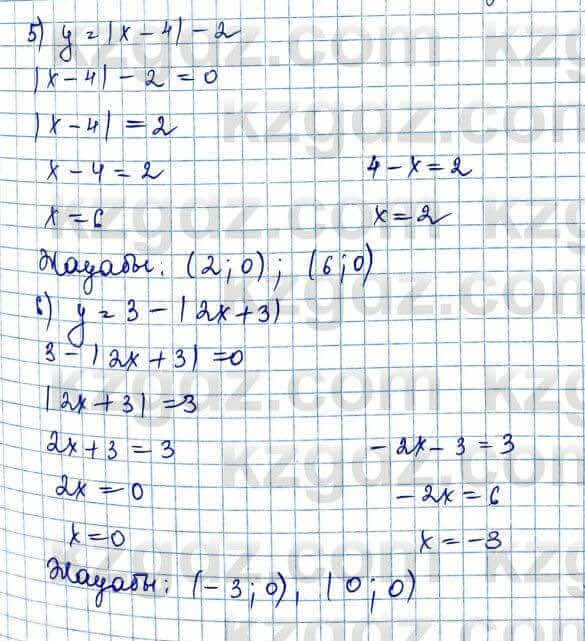 5) y = |x - 4| - 2
|x - 4| - 2 = 0
|x - 4| = 2
x - 4 = 2 4 - x = 2
x = 6 x = 2
Жауабы: (2; 0); (6; 0)
6) y = 3 - |2x + 3|
3 - |2x + 3| = 0
|2x + 3| = 3
2x + 3 = 3 - 2x - 3 = 3
2x = 0 - 2x = 6
x = 0 x = -3
Жауабы: (-3; 0), (0; 0)
kzgdz.com